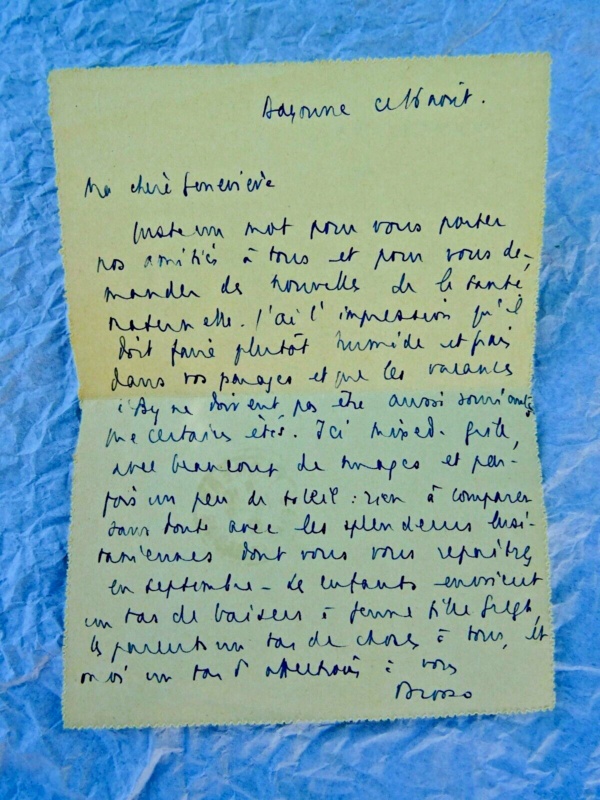 Bayonne ce 16 août.
Ma chère Geneviève
Juste un mot pour vous porter
nos amitiés à tous et pour vous de-
mander des nouvelles de la santé
maternelle. J'ai l'impression qu'il
doit faire plutôt humide et frais
dans vos parages et que les vacances
d'Ay ne doivent pas être aussi souriantes
que certains étés. Ici mixed-grill,
avec beaucoup de nuages et par-
fois un peu de soleil : rien à comparer
sans doute avec les splendeurs lusi-
taniennes dont vous vous repaîtrez
en septembre - Les enfants envoient
un tas de baisers à jeune fille
les parents un tas de choses à tous, et
moi un tas d'affections à vous